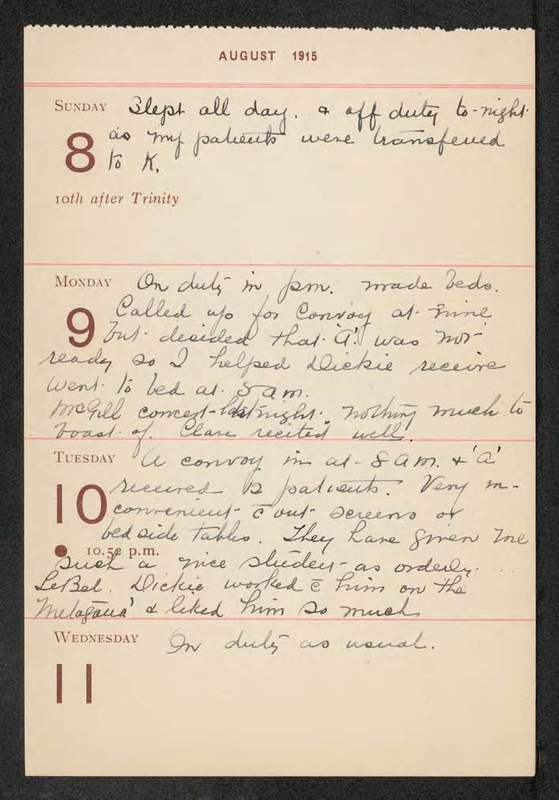 AUGUST 1915
SUNDAY Slept all day. & off duty to-night
8 as my patients were transferred
to K.
10th after Trinity
MONDAY On duty in pm. made beds.
9 Called up for Convoy at nine
but decided that 'A' was not
ready so I helped Dickie receive
went to bed at 5 am.
McGill concert last night. Nothing much to
boast of. Clare recited well.
TUESDAY A convoy in at 8 AM. & 'A'
10 received 12 patients. Very in-
convenient c̄ out screens or
bedside tables. They have given me
10.52 p.m.
such a nice student as orderly.
LeBel. Dickie worked c̄ him on the
'Metagama' & liked him so much
WEDNESDAY On duty as usual.
11